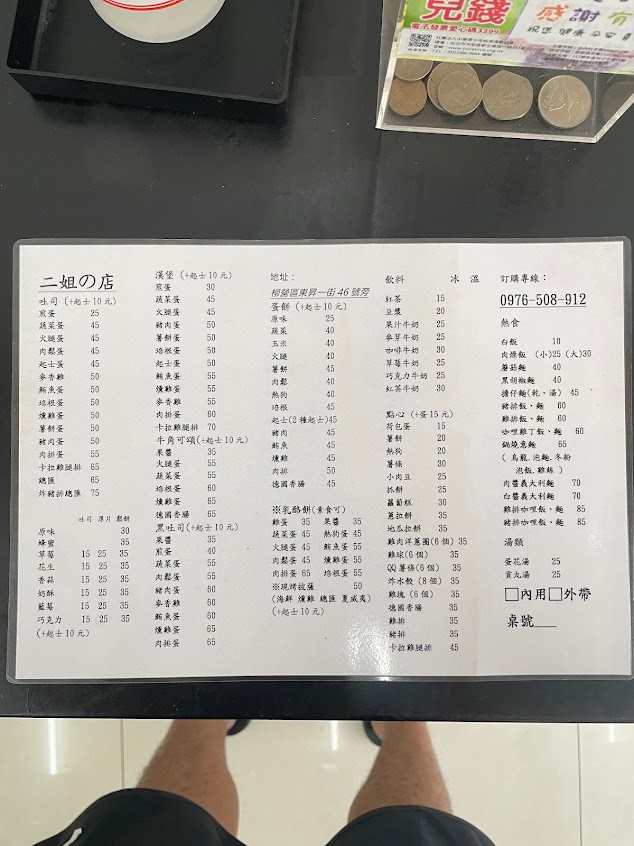 兒錢
電子發票愛心碼3399
感謝有
祝您 健康 平安
二姐の店
吐司 (+起士10元)
煎蛋 25
蔬菜蛋 45
火腿蛋 45
玉米蛋 45
肉鬆蛋 45
起士蛋 45
麥香雞 50
鮪魚蛋 50
培根蛋 50
燻雞蛋 50
薯餅蛋 50
豬肉蛋 50
肉排蛋 55
卡拉雞腿排 65
總匯 65
炸豬排總匯 75
吐司 厚片 鬆餅
原味 30
蜂蜜 35
草莓 15 25 35
花生 15 25 35
香蒜 15 25 35
奶酥 15 25 35
藍莓 15 25 35
巧克力 15 25 35
(+起士10元)
漢堡 (+起士10元)
煎蛋 30
蔬菜蛋 45
火腿蛋 45
豬肉蛋 50
薯餅蛋 50
培根蛋 50
起士蛋 50
鮪魚蛋 55
燻雞蛋 55
麥香蛋 55
肉排蛋 60
卡拉雞腿 70
牛角可頌(+起士10元)
果醬 35
火腿蛋 55
蔬菜蛋 55
培根蛋 60
燻雞蛋 60
德國香腸 65
黑吐司(+起士10元)
果醬 35
煎蛋 40
蔬菜蛋 55
肉鬆蛋 55
豬肉蛋 60
麥香雞 60
鮪魚蛋 60
燻雞蛋 65
肉排蛋 65
地址:
柳營區東昇一街46號旁
蛋餅 (+起士10元)
原味 25
蔬菜 40
玉米 40
火腿 40
薯餅 45
肉鬆 40
熱狗 40
培根 45
起士(2種起士)45
豬肉 45
鮪魚 45
燻雞 45
肉排 50
德國香腸 45
※乳酪餅(素食可)
雞蛋 35 果醬 35
蔬菜蛋 45 熱狗蛋 45
火腿蛋 45 鮪魚蛋 55
肉鬆蛋 45 燻雞蛋 55
肉排蛋 65 培根蛋 55
※現烤披薩 50
(海鮮 燻雞 總匯 夏威夷)
(+起士10元)
飲料 冰 溫
紅茶 15
豆漿 20
果汁牛奶 25
麥芽牛奶 25
咖啡牛奶 30
草莓牛奶 25
巧克力牛奶 25
紅茶牛奶 30
點心 (+蛋15元)
荷包蛋 15
薯餅 20
熱狗 20
薯條 30
小肉豆 25
抓餅 25
蘿蔔糕 30
蔥拉餅 35
地瓜拉餅 35
雞肉洋蔥圈(6個) 35
雞球(6個) 35
QQ薯條(6個) 35
炸水餃 (8個) 35
雞塊 (6個) 35
德國香腸 35
雞排 35
豬排 35
卡拉雞腿排 45
訂購專線:
0976-508-912
熱食
白飯 10
肉燥飯 (小)25 (大)30
蘑菇麵 40
黑胡椒麵 40
擔仔麵(乾、湯) 45
豬排飯、麵 60
雞排飯、麵 60
咖哩雞丁飯、麵 60
鍋燒意麵 65
( 烏龍.泡麵.冬粉
泡飯,雞絲 )
肉醬義大利麵 70
白醬義大利麵 70
雞排咖哩飯、麵 85
豬排咖哩飯、麵 85
湯類
蛋花湯 25
貢丸湯 25
□內用□外帶
桌號